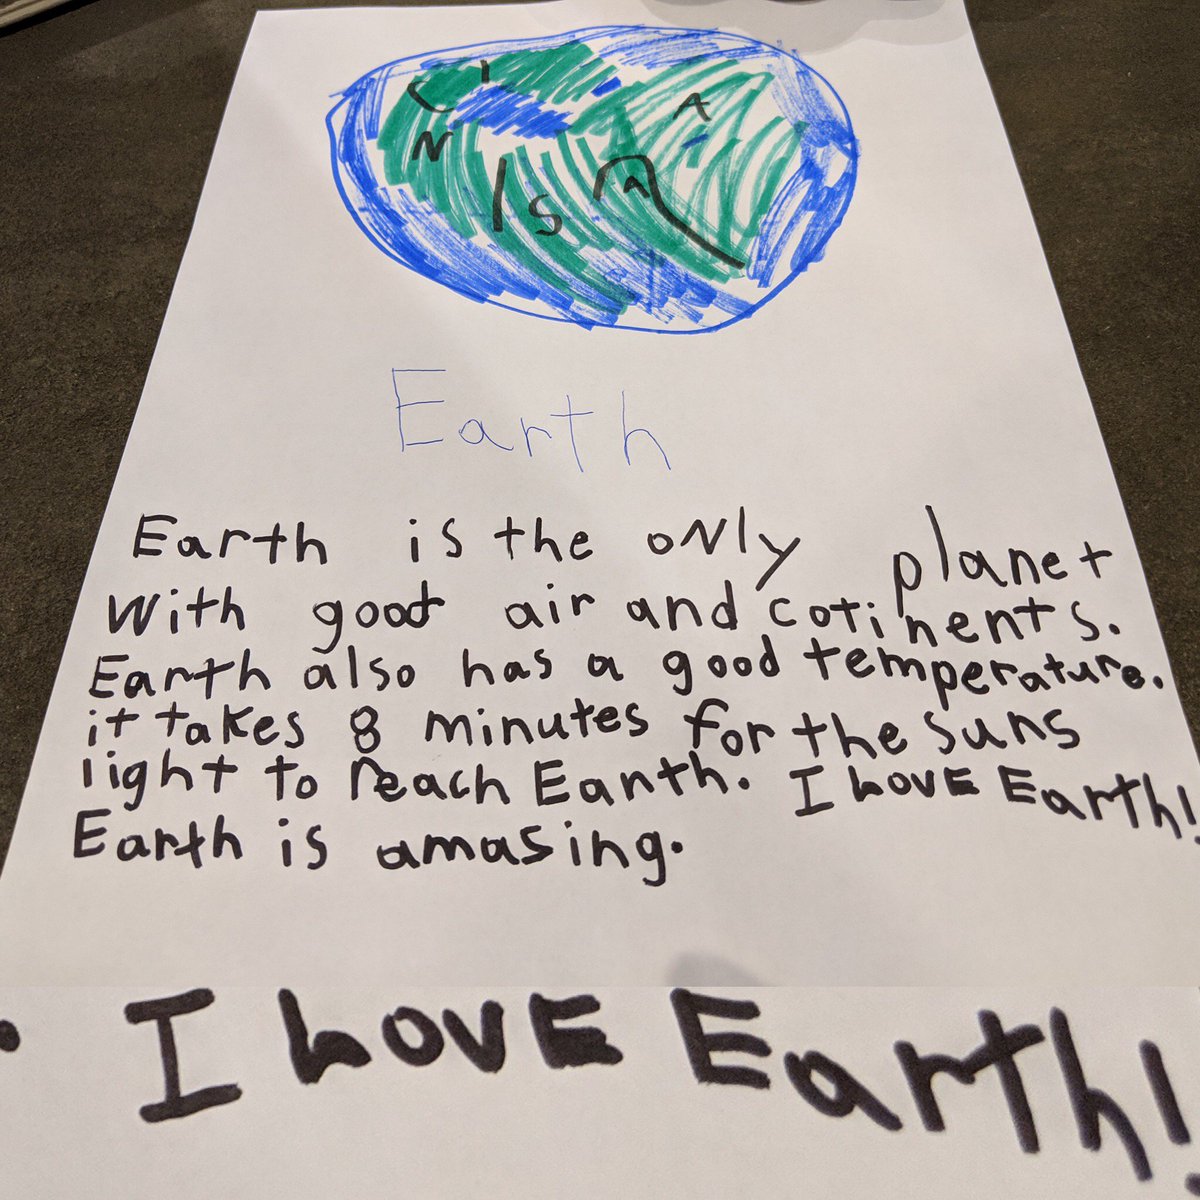 Earth
Earth is the only planet
with good air and cotinents.
Earth also has a good temperature.
it takes 8 minutes for the suns
light to reach Eanth. I LOVE Earth!
Earth is amasing.
I LOVE Earth!